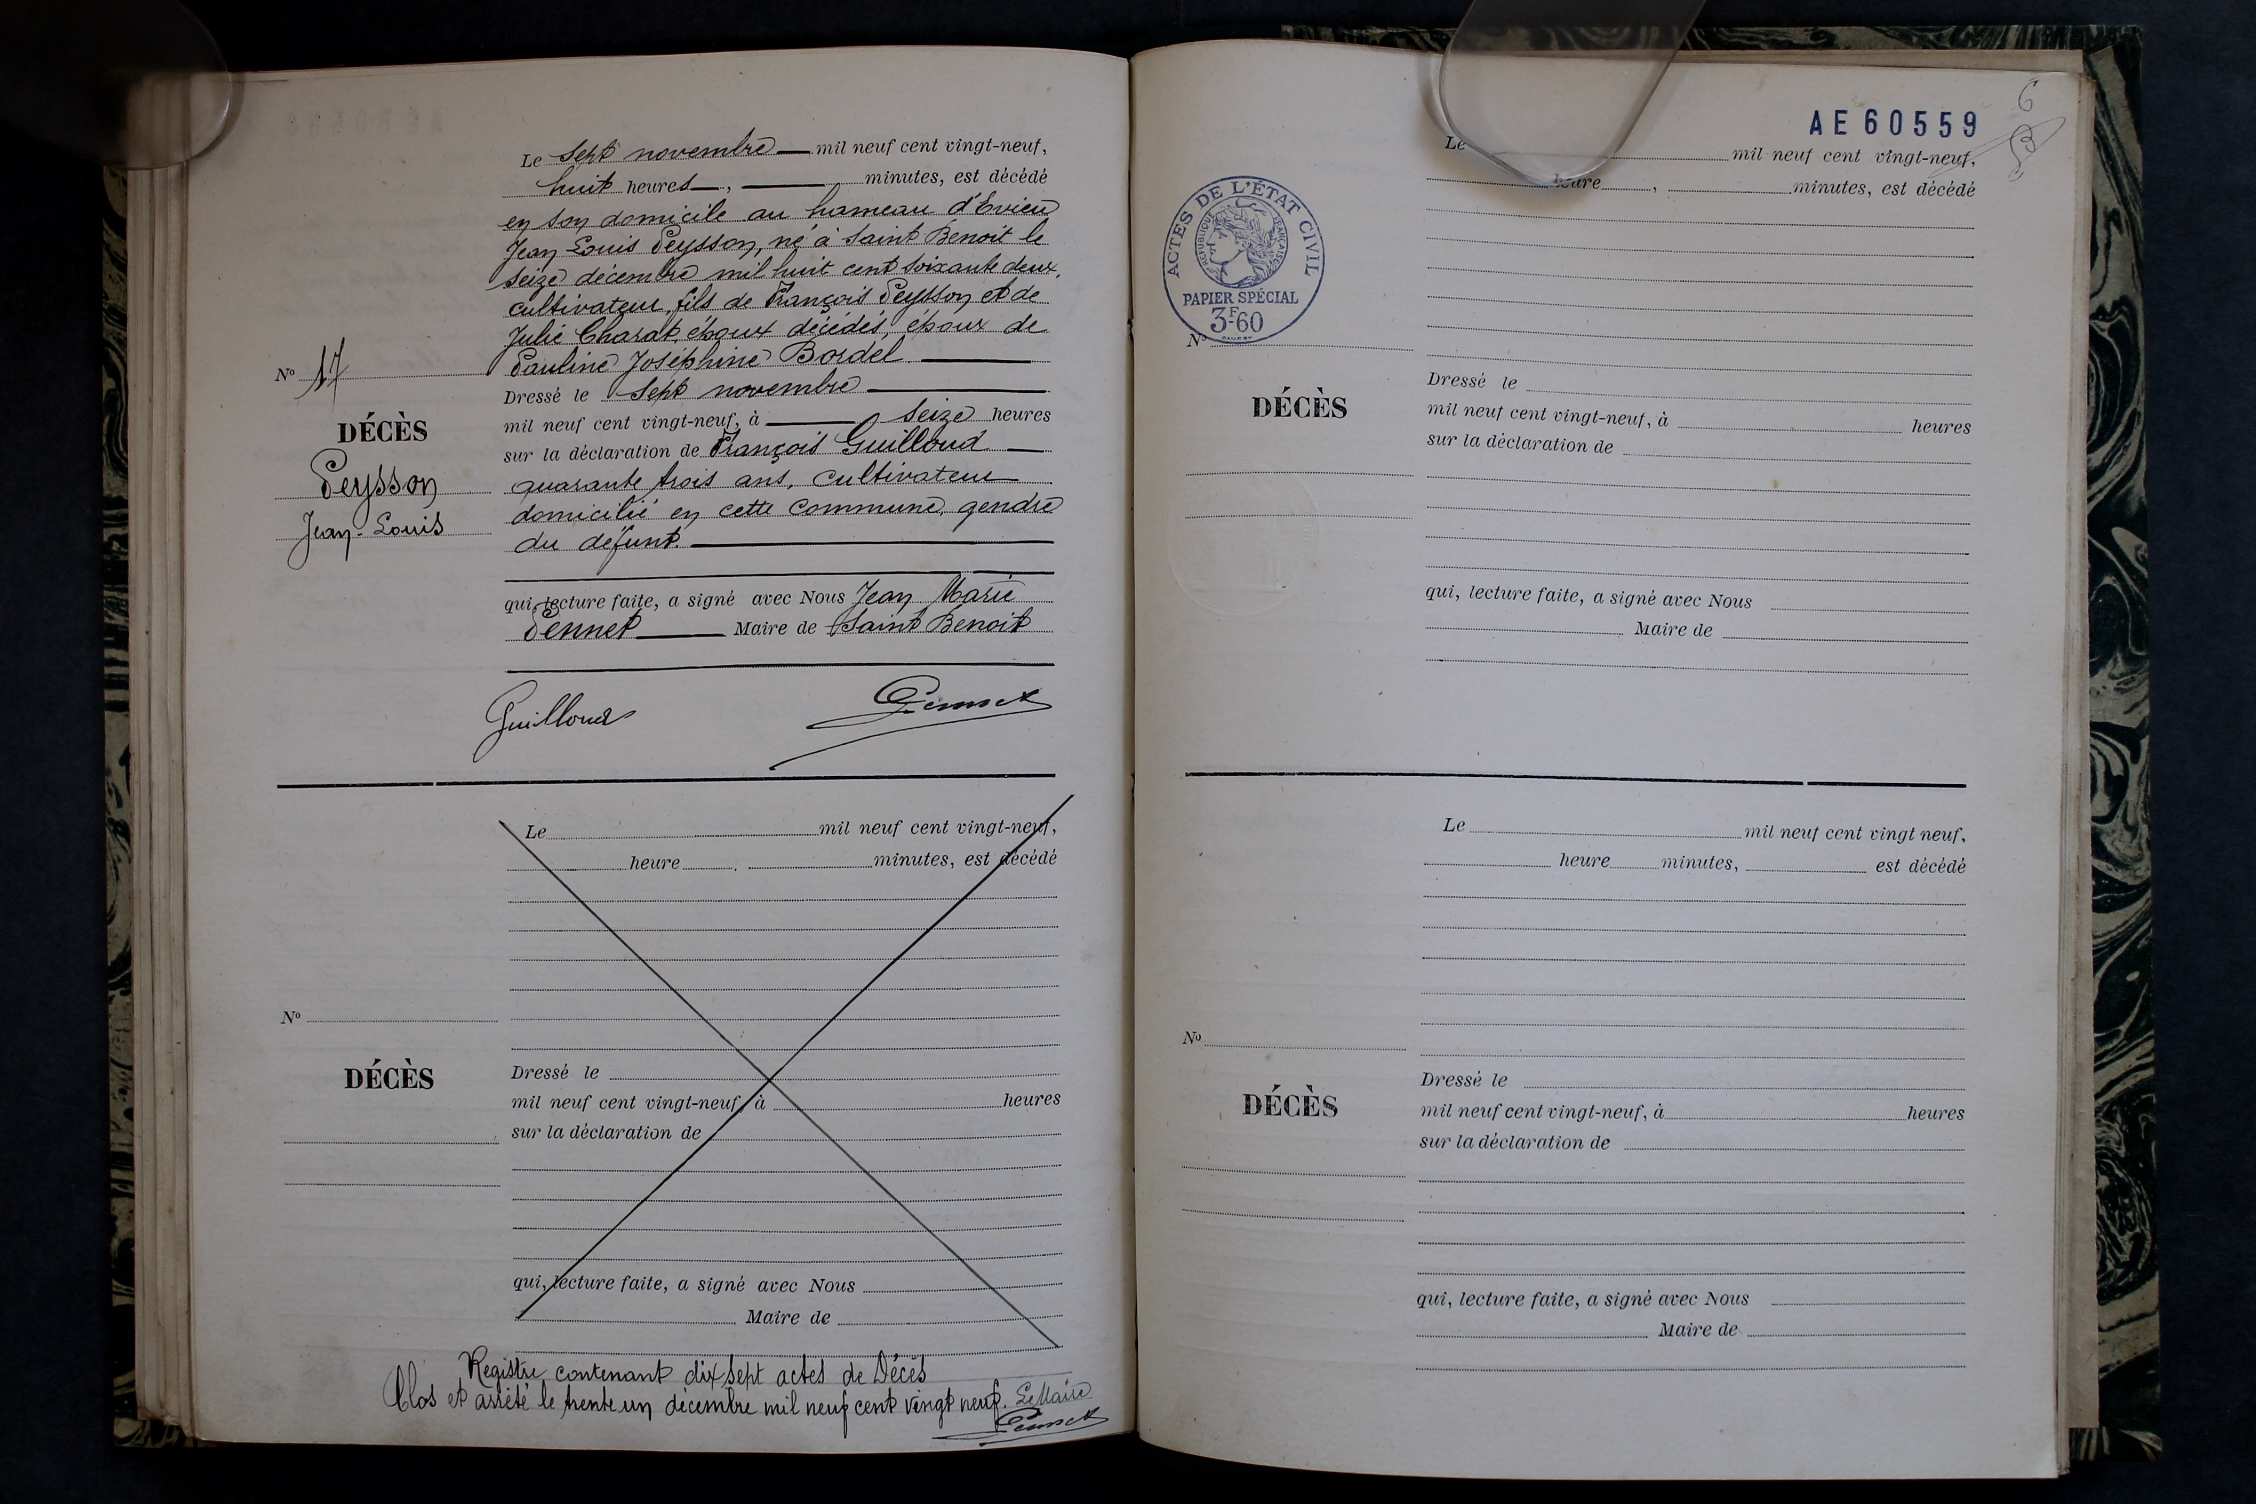 Le sept novembre mil neuf cent vingt-neuf,
huit heures, minutes, est décédé
en son domicile au hameau d'Evieu
Jean Louis Peysson, né à Saint Benoit le
seize décembre mil huit cent soixante deux,
cultivateur, fils de François Peysson et de
Julie Charat, époux décédés, époux de
Pauline Joséphine Bordel
Nº 17
Dressé le sept novembre
mil neuf cent vingt-neuf, à seize heures
DÉCÈS
sur la déclaration de François Guilloud
Peysson
quarante trois ans, cultivateur
domicilié en cette commune, gendre
Jean-Louis
du défunt.
qui, lecture faite, a signé avec Nous Jean Marie
Pennet Maire de Saint Benoit
Guilloud
Pennet
Le mil neuf cent vingt-neuf,
heure , minutes, est décédé
Nº
DÉCÈS
Dressé le
mil neuf cent vingt-neuf, à heures
sur la déclaration de
qui, lecture faite, a signé avec Nous
Maire de
Registre contenant dix sept actes de Décès
Clos et arrêté le trente un décembre mil neuf cent vingt neuf. Le Maire
Pennet
6
AE60559
Le mil neuf cent vingt-neuf,
heure , minutes, est décédé
ACTES DE L'ÉTAT CIVIL
REPUBLIQUE FRANÇAISE
PAPIER SPÉCIAL
3F-60
Nº
DÉCÈS
Dressé le
mil neuf cent vingt-neuf, à heures
sur la déclaration de
qui, lecture faite, a signé avec Nous
Maire de
Le mil neuf cent vingt neuf,
heure minutes, est décédé
Nº
DÉCÈS
Dressé le
mil neuf cent vingt-neuf, à heures
sur la déclaration de
qui, lecture faite, a signé avec Nous
Maire de